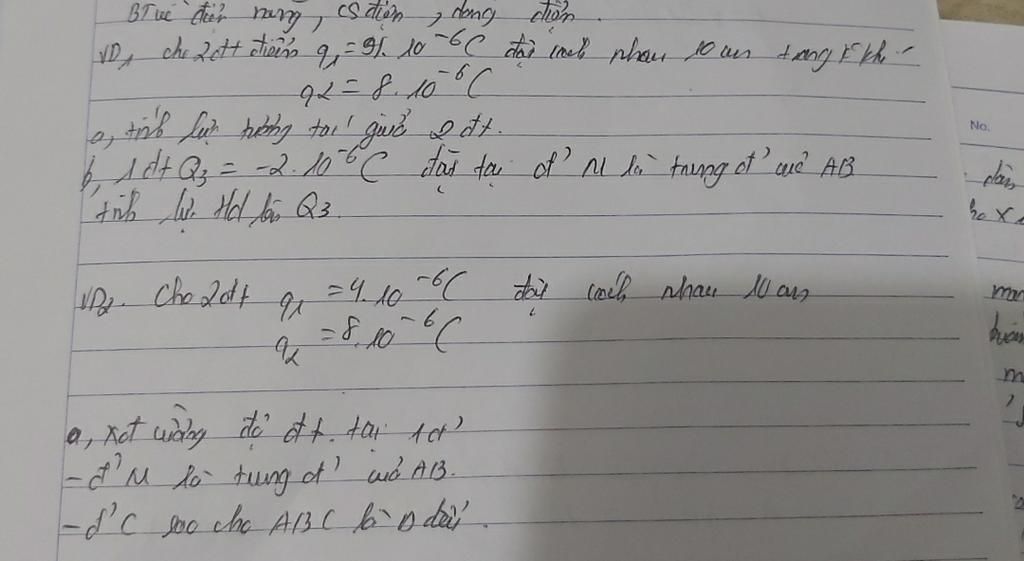 BT về điện năng, CS điện, dòng điện.
VD1, cho 2đt điểm q1 = 4.10⁻⁶C đặt cách nhau 10 cm trong kkhí
q2 = 8.10⁻⁶C
a, tính lực tương tác giữa 2 đt.
b, 1 đt Q3 = -2.10⁻⁶C đặt tại đ' M là trung đ' của AB
tính lực td lên Q3.
VD2. Cho 2đt q1 = 4.10⁻⁶C đặt cách nhau 10 cm
q2 = 8.10⁻⁶C
a, xđ cường độ đt. tại 1đ'
- đ' M là trung đ' của AB.
- đ' C sao cho ABC là Δ đều.
No.